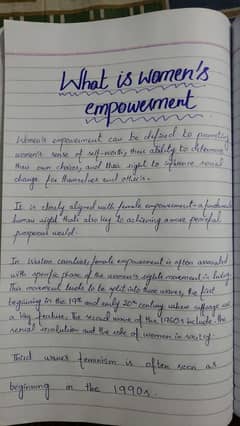 What is women's
empowerment
Women's empowerment can be defined to promoting
women's sense of self-worth, their ability to determine
their own choices, and their right to influence social
change for themselves and others.
It is closely aligned with female empowerment - a fundamental
human right that's also key to achieving a more peaceful
prosperous world.
In Western countries, female empowerment is often associated
with specific phase of the women's rights movement in history.
This movement tends to be split into three waves, the first
beginning in the 19th and early 20th century where suffrage was
a key feature. The second wave of the 1960s include the
sexual revolution and the role of women in society.
Third wave feminism is often seen as
beginning in the 1990s.